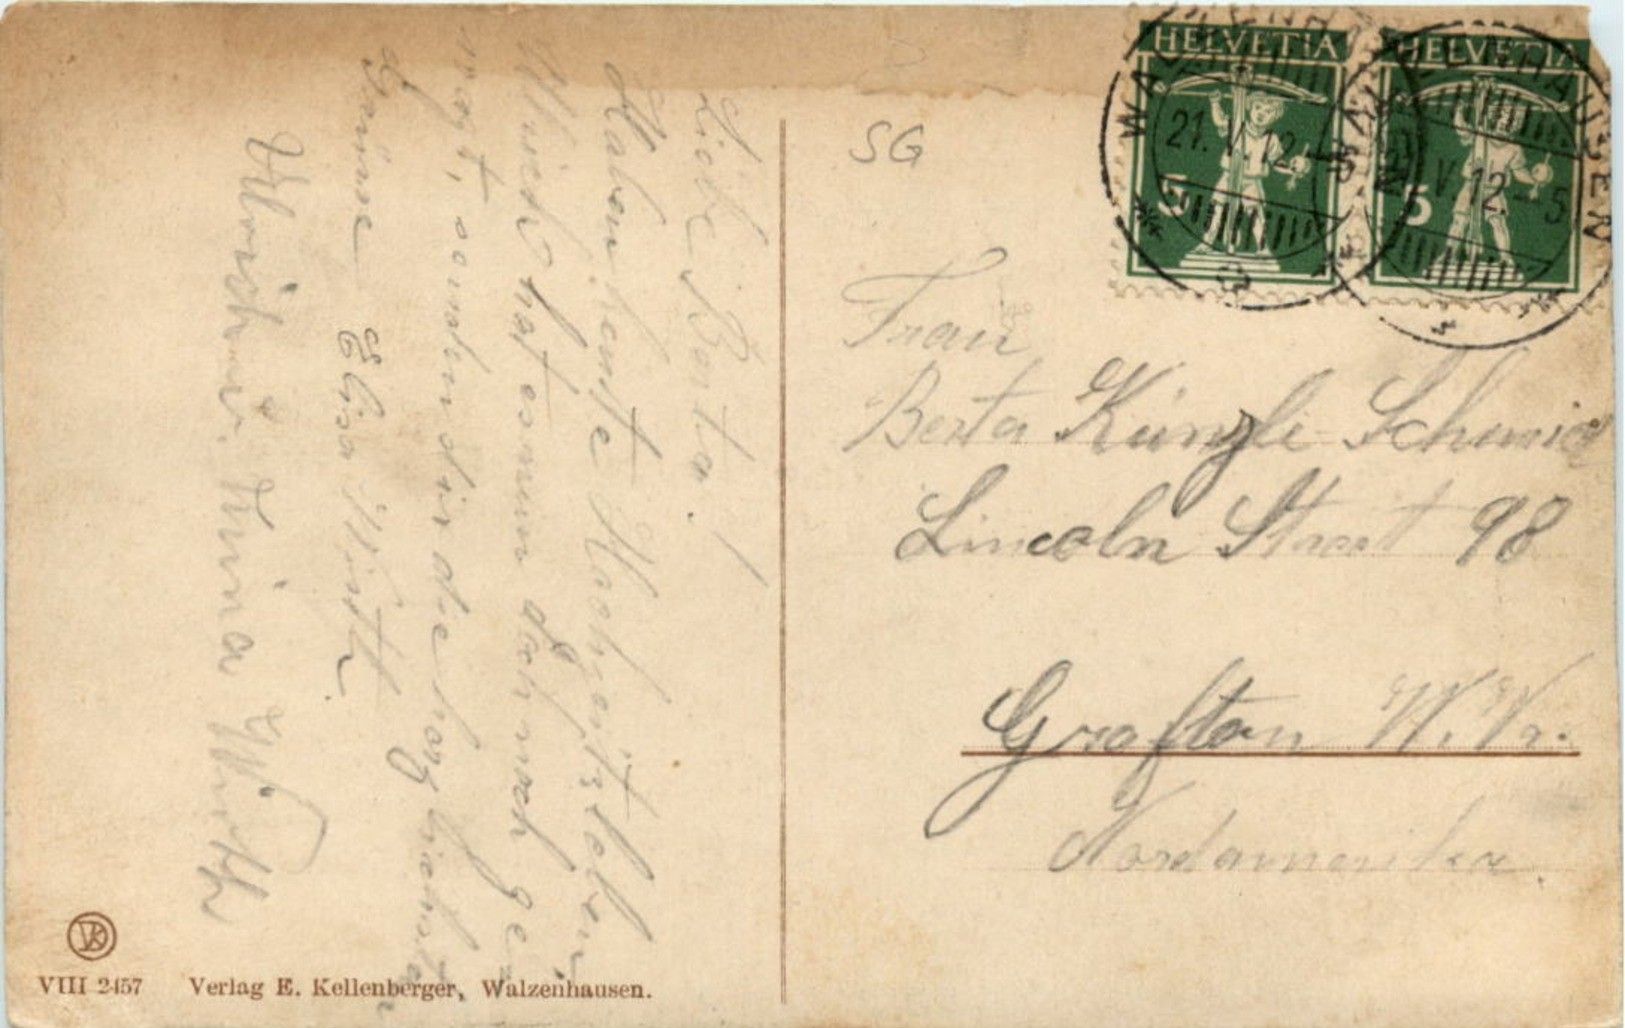 Liebe Berta!
Haben heute Hochzeitsleben,
Mich hat es nun doch noch ge
sandten dir die herzlichsten
Grüsse Elisa Wirth
Wirth
SG
HELVETIA
HELVETIA
5
5
WALZENHAUSEN
21. V. 12. - 5
WALZENHAUSEN
V. 12. - 5
Frau
Berta Künzli Schmid
Lincoln Street 98
Grafton W. Va.
Nordamerika.
VK
VIII 2457 Verlag E. Kellenberger, Walzenhausen.